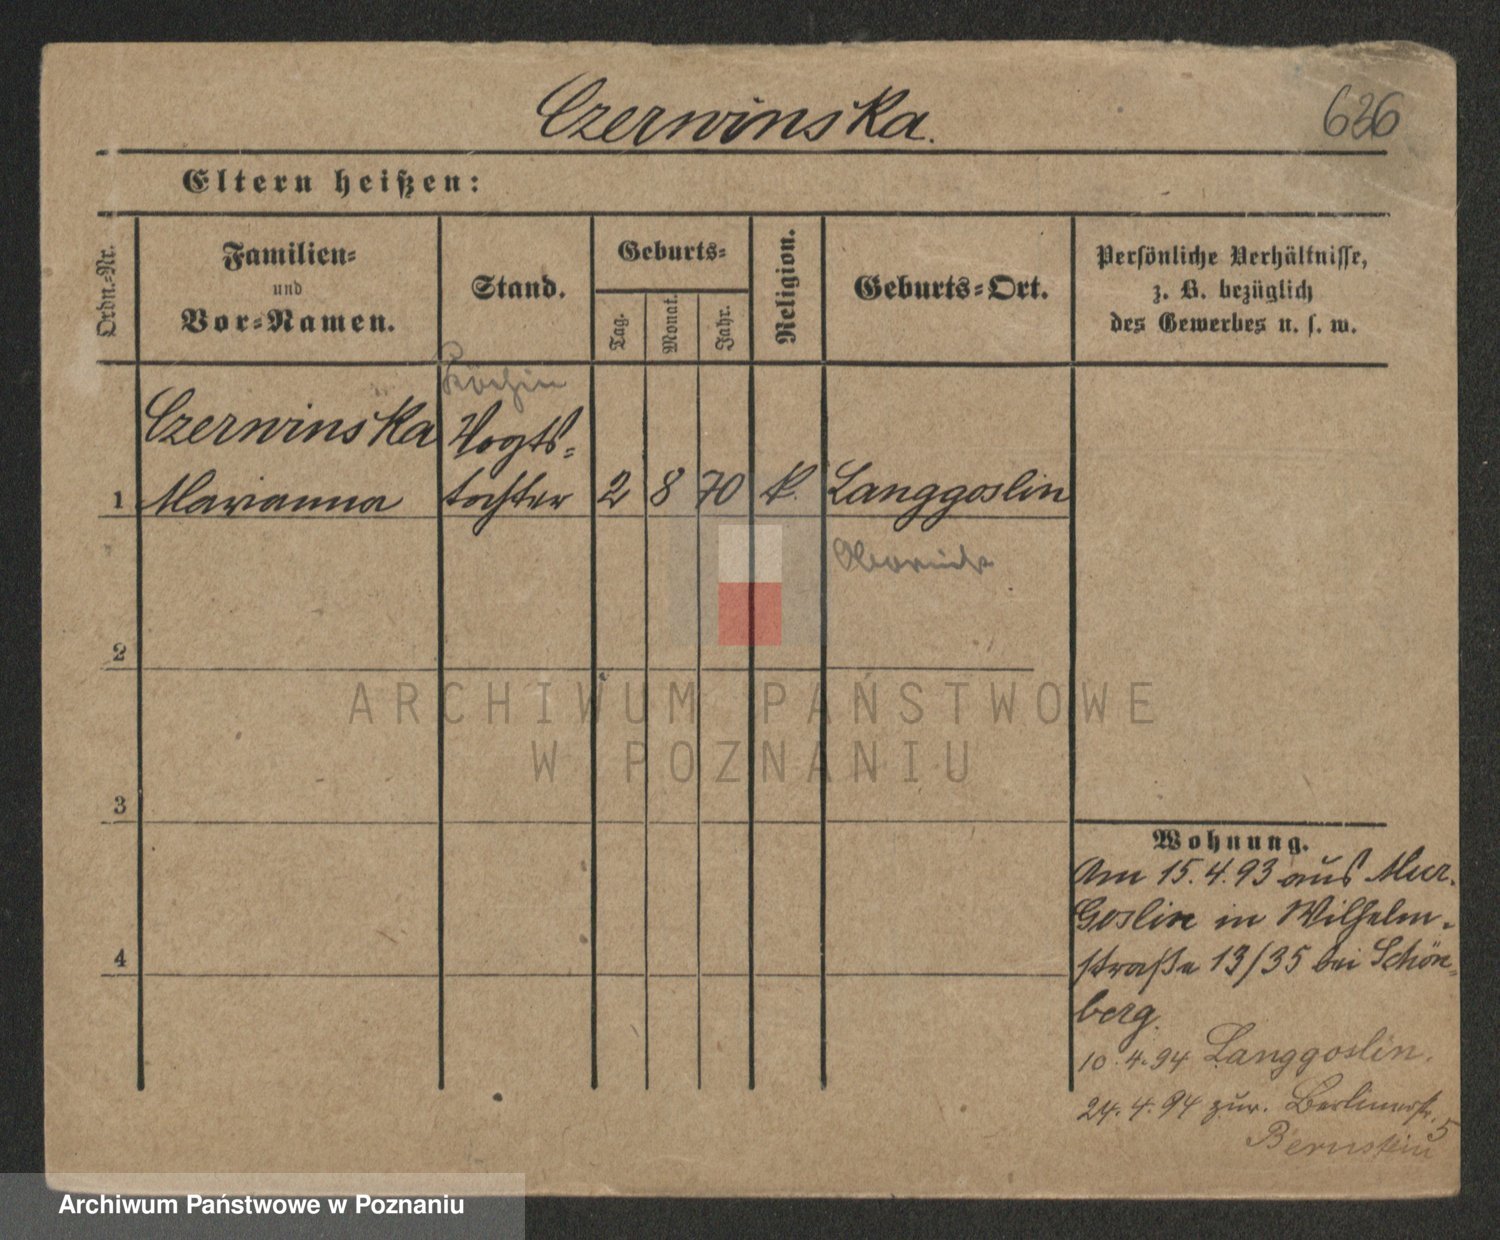 Czerwinska.
626
Eltern heißen:
Ordn.-Nr.
Familien-
und
Vor-Namen.
Stand.
Geburts-
Tag.
Monat.
Jahr.
Religion.
Geburts-Ort.
Persönliche Verhältnisse,
z. B. bezüglich
des Gewerbes u. s. w.
Köchin
Czerwinska
Vogts-
1 Marianna tochter 2 8 70 k. Langgoslin
Obornik
2
ARCHIWUM PAŃSTWOWE
W POZNANIU
3
Wohnung.
Am 15.4.93 aus Mur.
Goslin in Wilhelm-
straße 13/35 bei Schön-
4
berg.
10.4.94 Langgoslin.
24.4.94 zur. Berlinerstr. 5
Bernstein
Archiwum Państwowe w Poznaniu